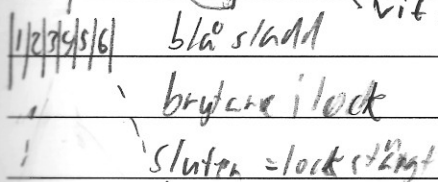 vit
|1|2|3|4|5|6| blå sladd
brytare i lock
sluten = lock stängt